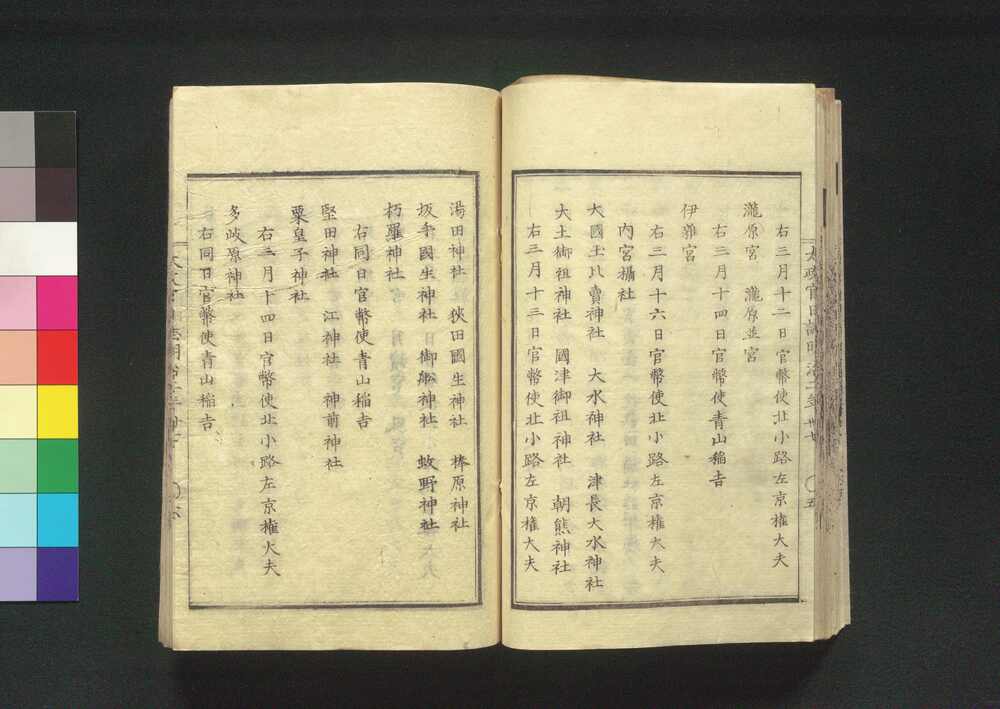 右三月十二日官幣使北小路左京權大夫
瀧原宮 瀧原並宮
右三月十四日官幣使青山稲吉
伊雜宮
右三月十六日官幣使北小路左京權大夫
內宮攝社
大國玉比賣神社 大水神社 津長大水神社
大土御祖神社 國津御祖神社 朝熊神社
右三月十三日官幣使北小路左京權大夫
湯田神社 狹田國生神社 榛原神社
坂手國生神社 御船神社 蚊野神社
朽羅神社
右同日官幣使青山稲吉
堅田神社 江神社 神前神社
粟皇子神社
右三月十四日官幣使北小路左京權大夫
多岐原神社
右同日官幣使青山稲吉